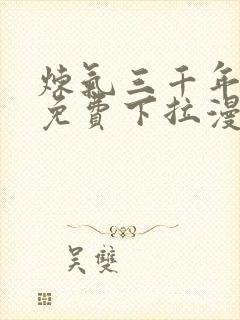 炼氣三千年
免費下拉漫
吴雙